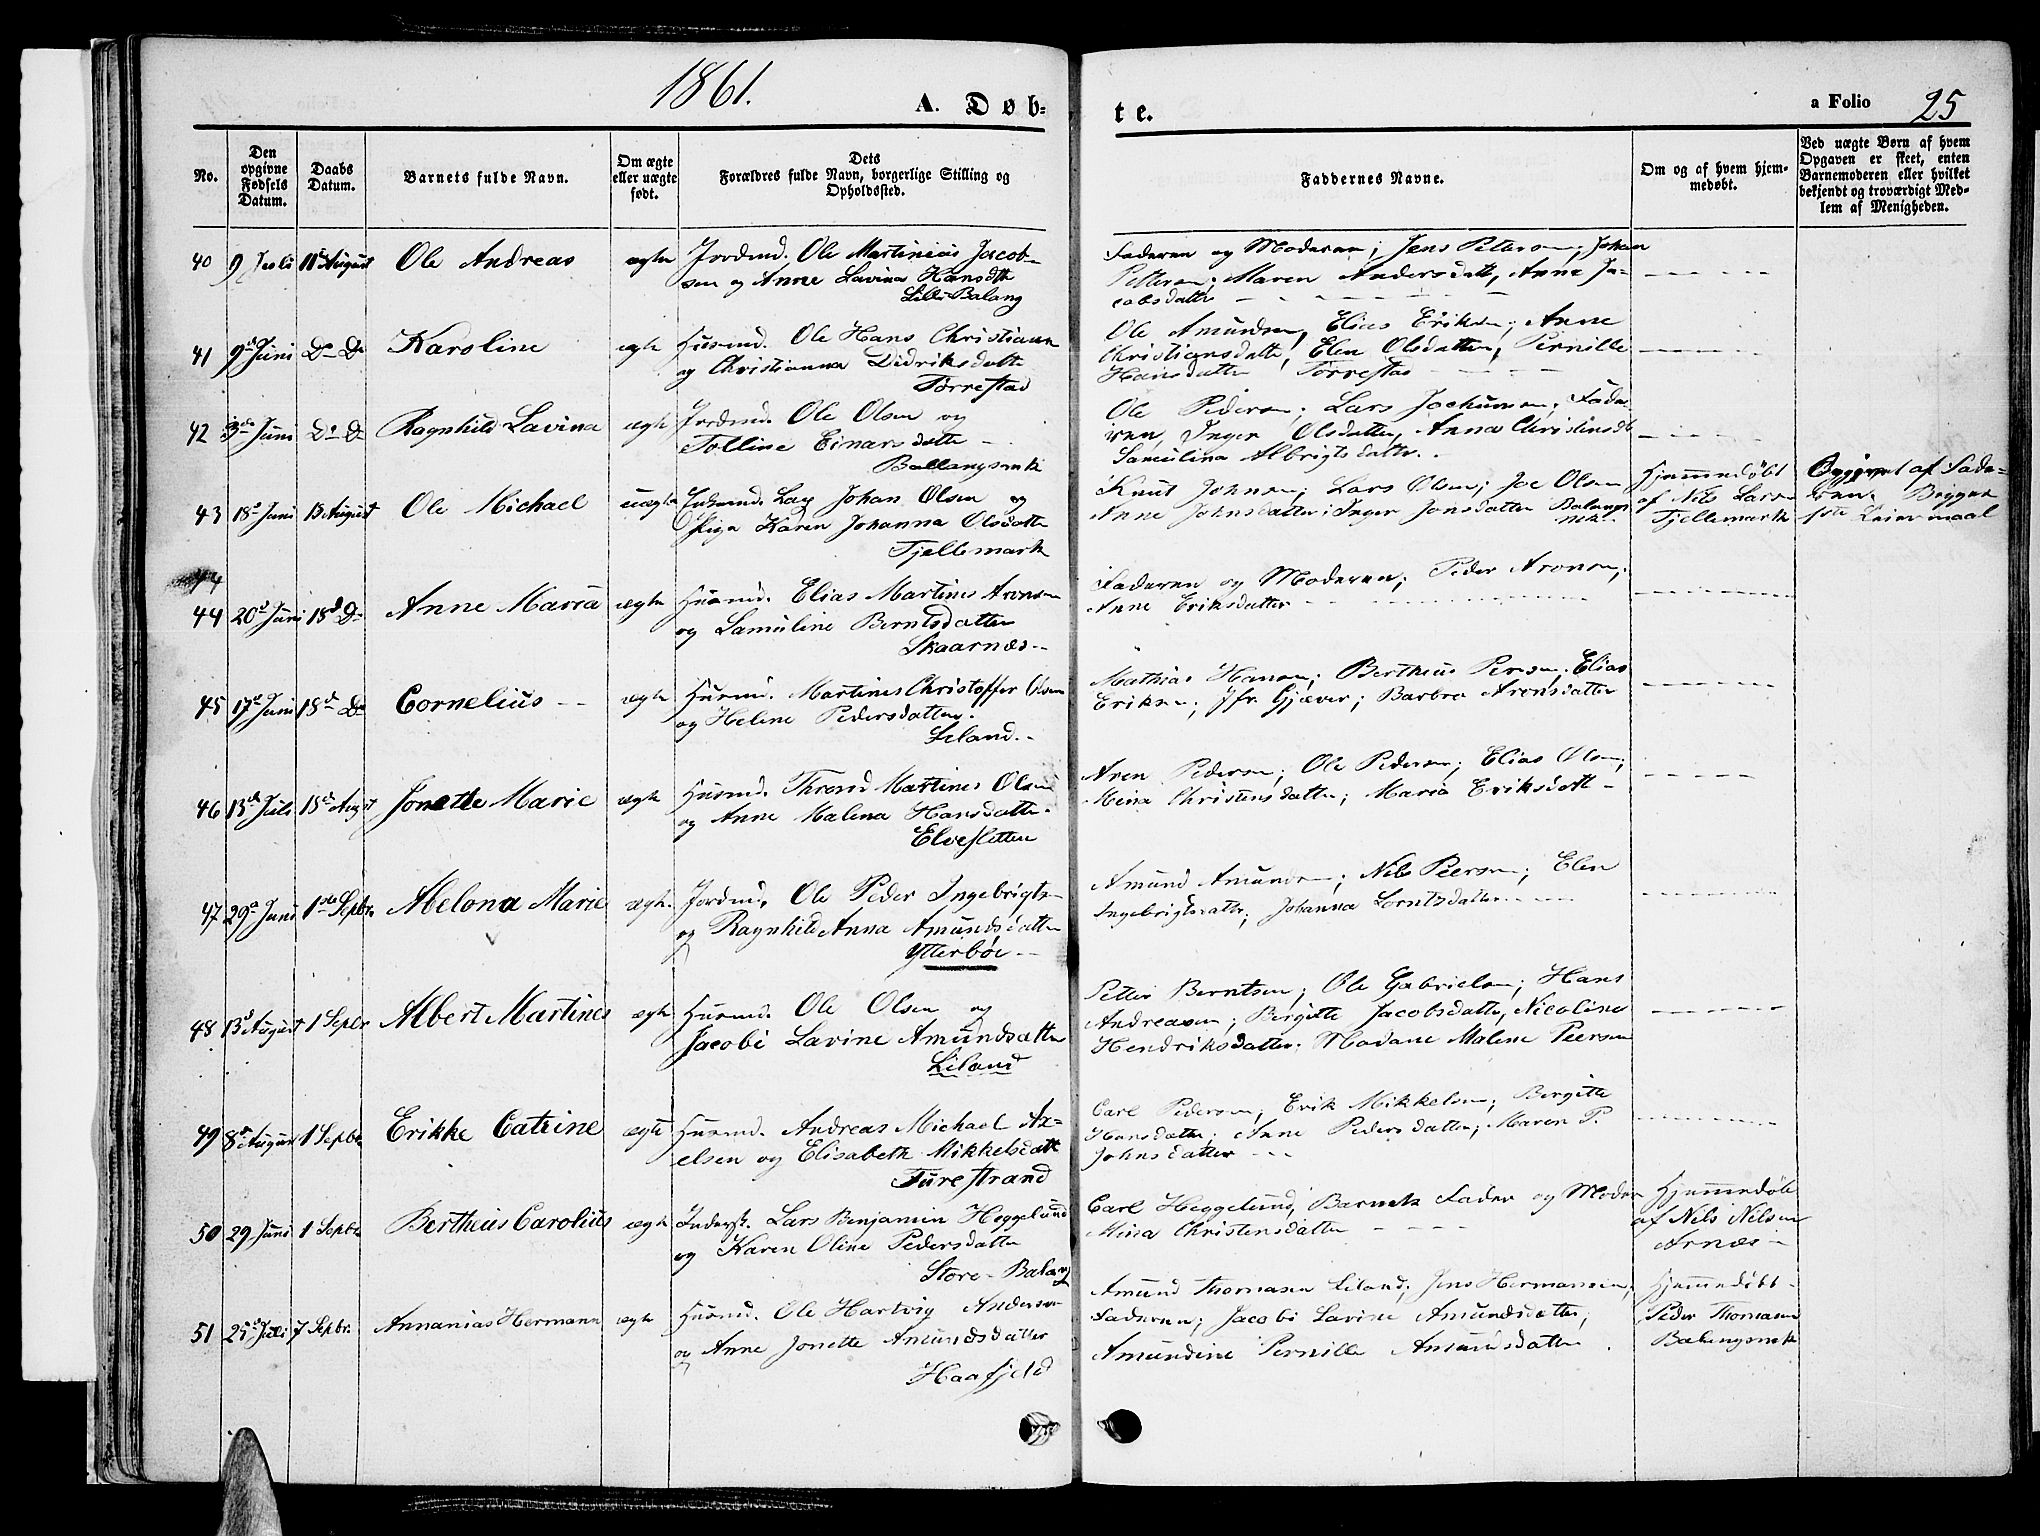 1861.
A. Døb-
te.
a Folio 25
No.
Den opgivne Fødsels Datum.
Daabs Datum.
Barnets fulde Navn.
Om ægte eller uægte født.
Dets Forældres fulde Navn, borgerlige Stilling og Opholdssted.
Faddernes Navne.
Om og af hvem hjemmedøbt.
Ved uægte Børn af hvem Opgaven er skeet, enten Barnemoderen eller hvilket bekjendt og troværdigt Medlem af Menigheden.
40 9 Juli 11 August Ole Andreas ægte Jordmd. Ole Martinius Jacob-
sen og Anne Lavina Hansdtt
Lille Balang
Faderen og Moderen; Jens Petersen; Johan
Pettersen; Maren Andersdatt, Anne Ja-
cobsdatter
41 9d Juni Do Do Karoline ægte Husmd. Ole Hans Christiansen
og Christianna Didriksdatte
Tørrestad
Ole Amundsen, Elias Eriksen; Anne
Christiansdatte, Elen Olsdatter, Pernille
Hansdatter Tørrestad
42 3de Juni Do Do Ragnhild Lavina ægte Jordmd. Ole Olsen og
Tolline Einarsdatte
Ballangsmk
Ole Pedersen; Lars Jochumsen, Fade-
ren, Inger Olsdatter, Anna Christinsdtt
Samulina Albrigtsdatter.
43 18d Juni 13 August Ole Michael uægte Lax Johan Olsen og
Pige Karen Johanna Olsdatte
Fjellemark
Knut Johnsen; Lars Olsen; Joe Olsen
Anne Johnsdatter; Inger Jonsdatter Balangsmek
Hjemmedøbt
af Nils Larsen
Fjellemark
Opgivet af Fade-
ren. Begges
1ste Leiermaal
44
44 20d Juni 18d Do Anne Maria ægte Husmd. Elias Martines Aronsen
og Samuline Berntsdatter
Skaarnæs
Faderen og Moderen; Peder Aronsen;
Anne Eriksdatter
45 17d Juni 18d Do Cornelius ægte Husmd. Martines Christoffer Olsen
og Helene Pedersdatter.
Liland.
Mathias Hansen; Bertheus Persen; Elias
Eriksen; Jfr. Gjæver; Barbra Aronsdatter
46 13d Juli 18d August Jonette Marie ægte Husmd. Thrond Martines Olsen
og Anne Malena Hansdatte.
Elvesletten
Aron Pedersen; Ole Pedersen; Elias Olsen;
Meina Christensdatte; Maria Eriksdatt
47 29d Juni 1ste Septbr. Abelona Marie ægte Jordmd. Ole Peder Ingebrigts-
og Ragnhild Anna Amundsdatte
Ytterbøe
Amund Amundsen; Nils Peersen; Elen
Ingebrigtsdatter; Johanna Lorntsdatter
48 13d August 1 Septbr Albert Martines ægte Husmd. Ole Olsen og
Jacobi Lavine Amundsdatter
Liland
Petter Berntsen; Ole Gabrielsen; Hans
Andreasen; Birgitte Jacobsdatter, Nicoline
Hendriksdatter; Madame Malene Peersen
49 8d August 1 Septbr Erikke Catrine ægte Husmd. Andreas Michael Ax-
elsen og Elisabeth Mikkelsdatt
Furestrand
Carl Pedersen; Erik Mikkelsen; Bergitte
Hansdatter; Anne Pedersdatter; Maren P.
Johnsdatter
50 29 Juni 1 Septbr Bertheus Carolius ægte Inderst. Lars Benjamin Heggelund
og Karen Oline Pedersdatter
Store-Balang
Carl Heggelund, Barnets Fader og Moder
Mina Christensdatter
Hjemmedøbt
af Nils Nilsen
Arnæs
51 25d Juli 7 Septbr. Annanias Hermann ægte Husmd. Ole Hartvig Andersen
og Anne Jonette Amundsdatter
Haafjeld
Amund Thomasen Liland; Jens Hermansen;
Faderen; Jacobi Lavine Amundsdatter;
Amundine Pernille Amundsdatter
Hjemmedøbt
Peder Thomasen
Balangsmek